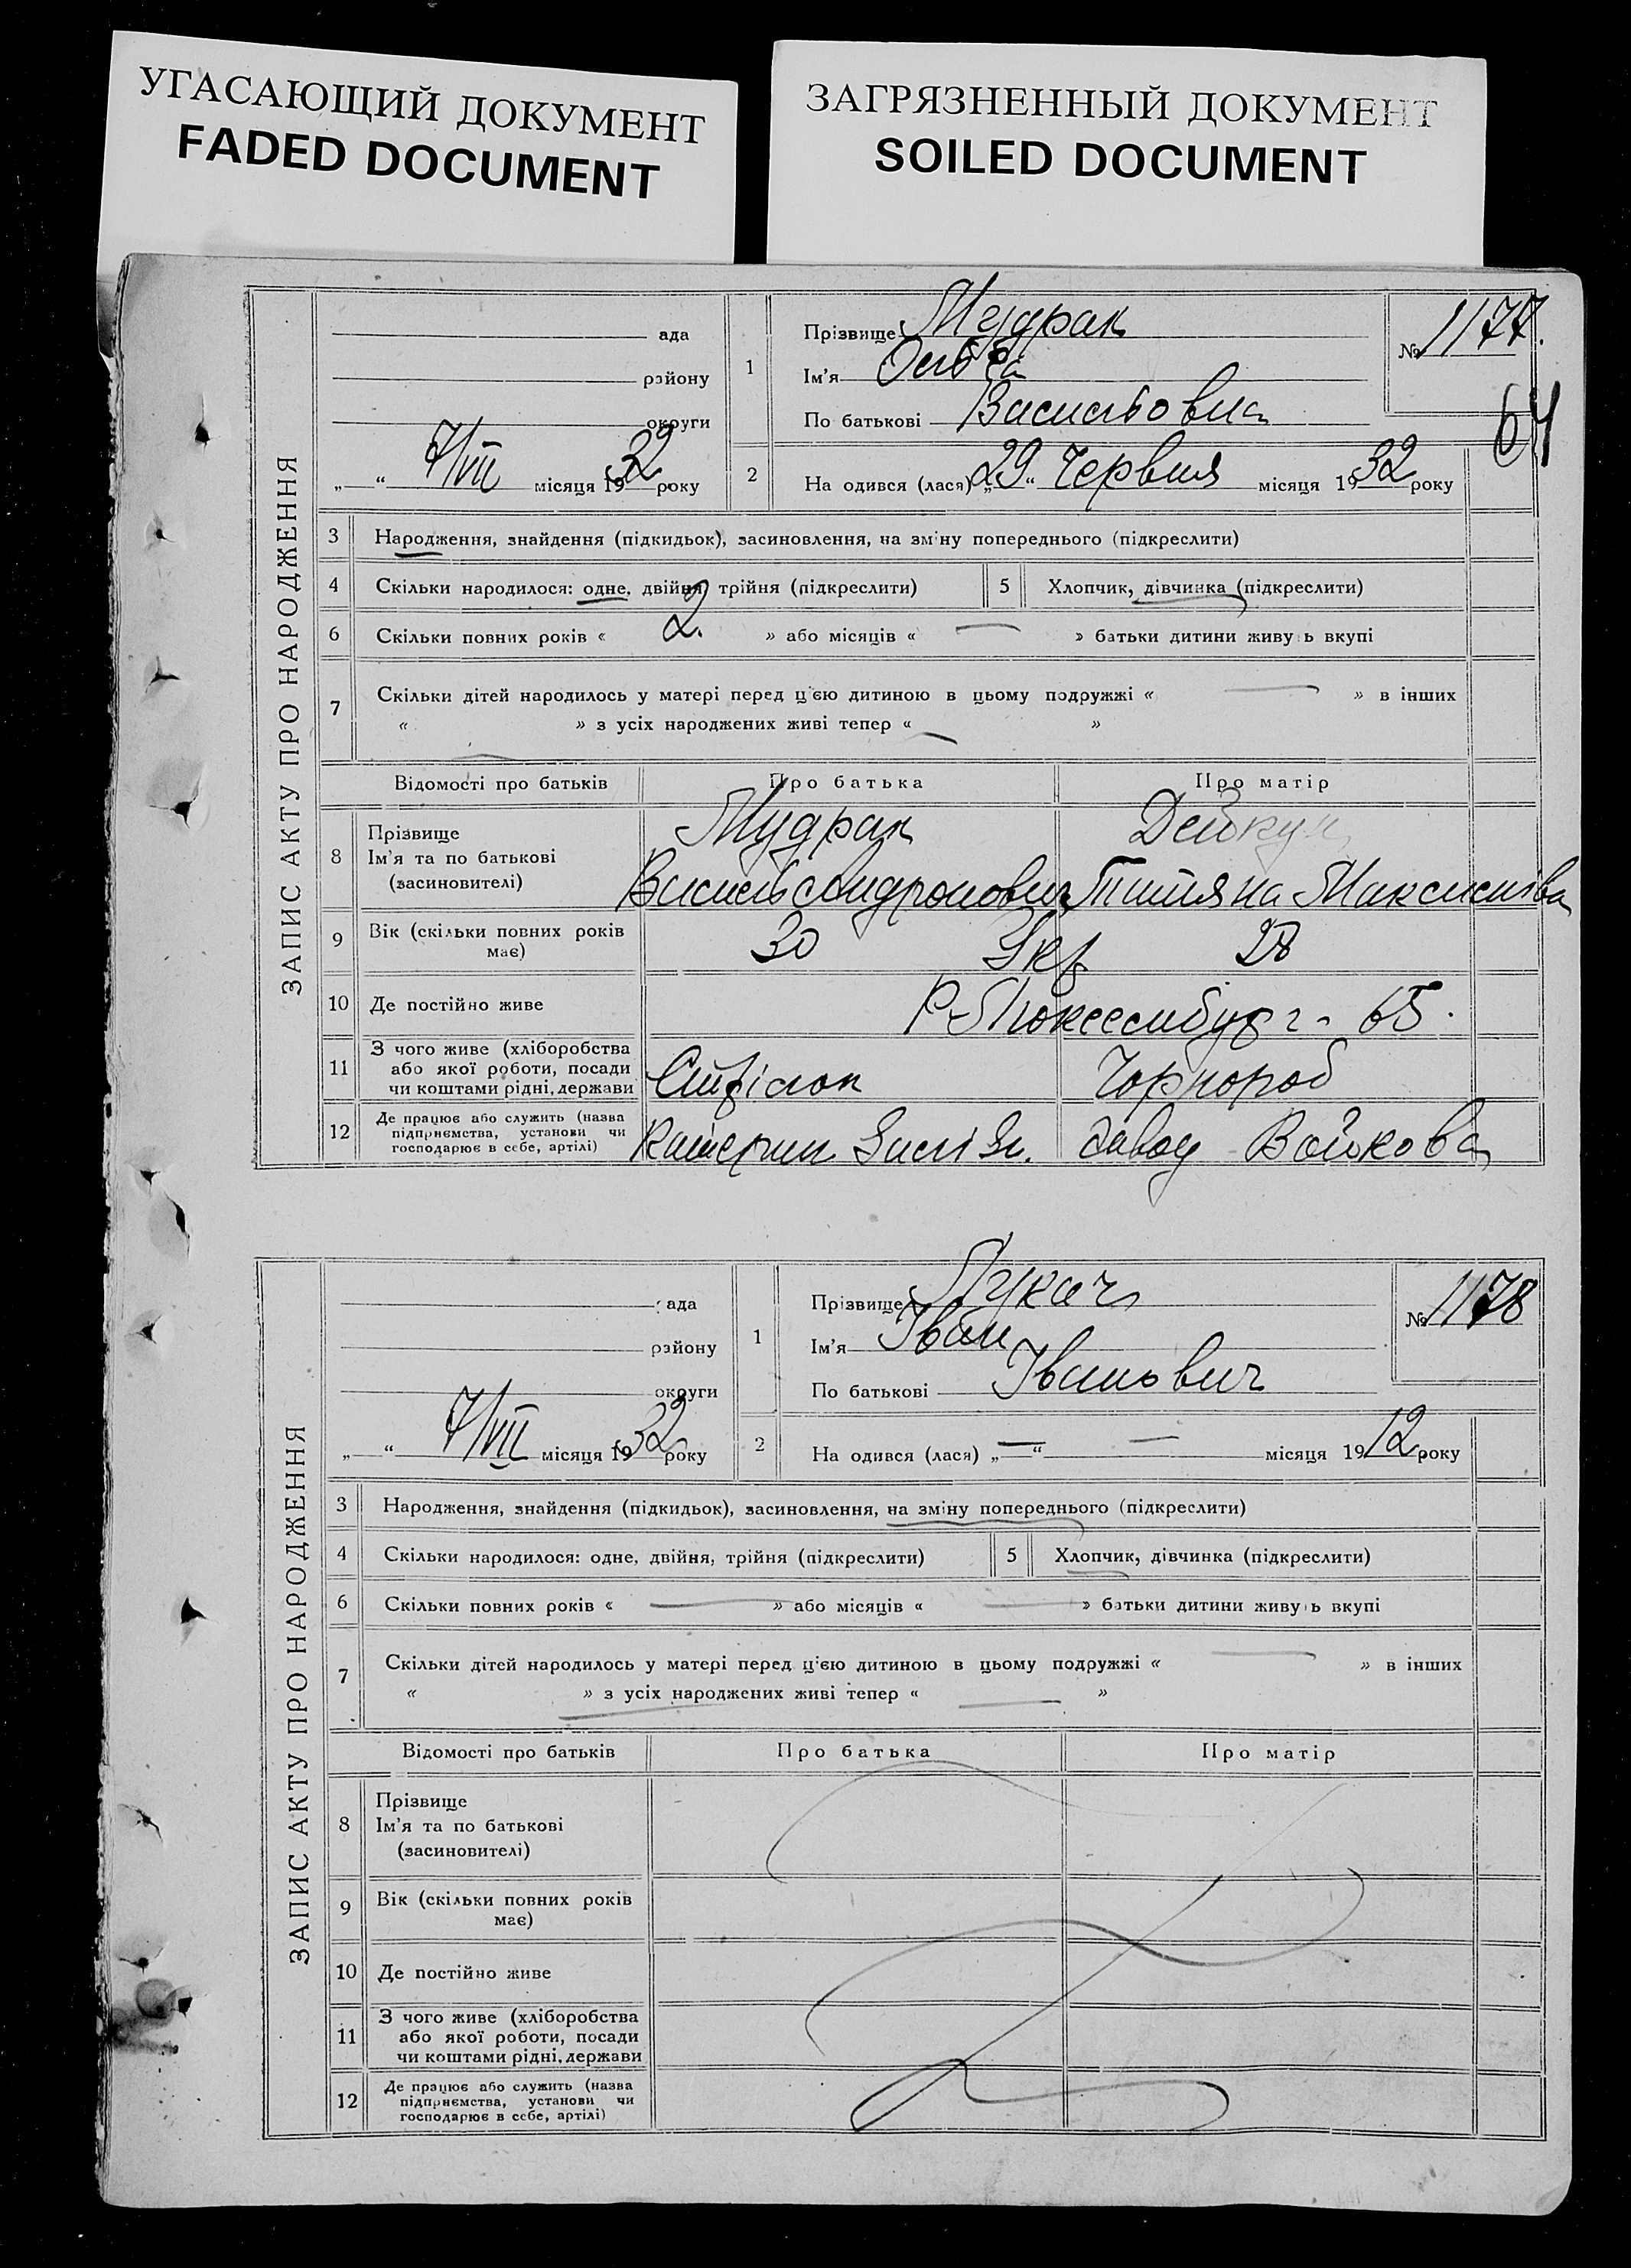 УГАСАЮЩИЙ ДОКУМЕНТ
FADED DOCUMENT
ЗАГРЯЗНЕННЫЙ ДОКУМЕНТ
SOILED DOCUMENT
ЗАПИС АКТУ ПРО НАРОДЖЕННЯ
ада
району
округи
„ “ 7/VII місяця 1932 року
1
Прізвище Мудрак
Ім’я
По батькові Васильовна
№ 1177.
64
2
На одився (лася) „29“ Червня місяця 1932 року
3 Народження, знайдення (підкидьок), засиновлення, на зміну попереднього (підкреслити)
4 Скільки народилося: одне, двійня, трійня (підкреслити)
5 Хлопчик, дівчинка (підкреслити)
6 Скільки повних років « 2. » або місяців « — » батьки дитини живу ь вкупі
7 Скільки дітей народилось у матері перед ц'єю дитиною в цьому подружжі « — » в інших
« — » з усіх народжених живі тепер « — »
Відомості про батьків Про батька Про матір
8 Прізвище Ім’я та по батькові (засиновителі)
Мудрак Дейкун
Василь Титяна
9 Вік (скільки повних років має) 30 Укр 28
10 Де постійно живе Р. 65.
11 З чого живе (хліборобства або якої роботи, посади чи коштами рідні, держави Чорнороб
12 Де працює або служить (назва підприємства, установи чи господарює в себе, артілі) Катерин завод Войкова
ЗАПИС АКТУ ПРО НАРОДЖЕННЯ
ада
району
округи
„ “ 7/VII місяця 1932 року
1
Прізвище Лукач
Ім’я Іван
По батькові Іванович
№ 1178
2
На одився (лася) „—“ — місяця 1912 року
3 Народження, знайдення (підкидьок), засиновлення, на зміну попереднього (підкреслити)
4 Скільки народилося: одне, двійня, трійня (підкреслити)
5 Хлопчик, дівчинка (підкреслити)
6 Скільки повних років « — » або місяців « — » батьки дитини живу ь вкупі
7 Скільки дітей народилось у матері перед ц'єю дитиною в цьому подружжі « — » в інших
« » з усіх народжених живі тепер « — »
Відомості про батьків Про батька Про матір
8 Прізвище
Ім’я та по батькові
(засиновителі)
9 Вік (скільки повних років
має)
10 Де постійно живе
11 З чого живе (хліборобства
або якої роботи, посади
чи коштами рідні, держави
12 Де працює або служить (назва
підприємства, установи чи
господарює в себе, артілі)